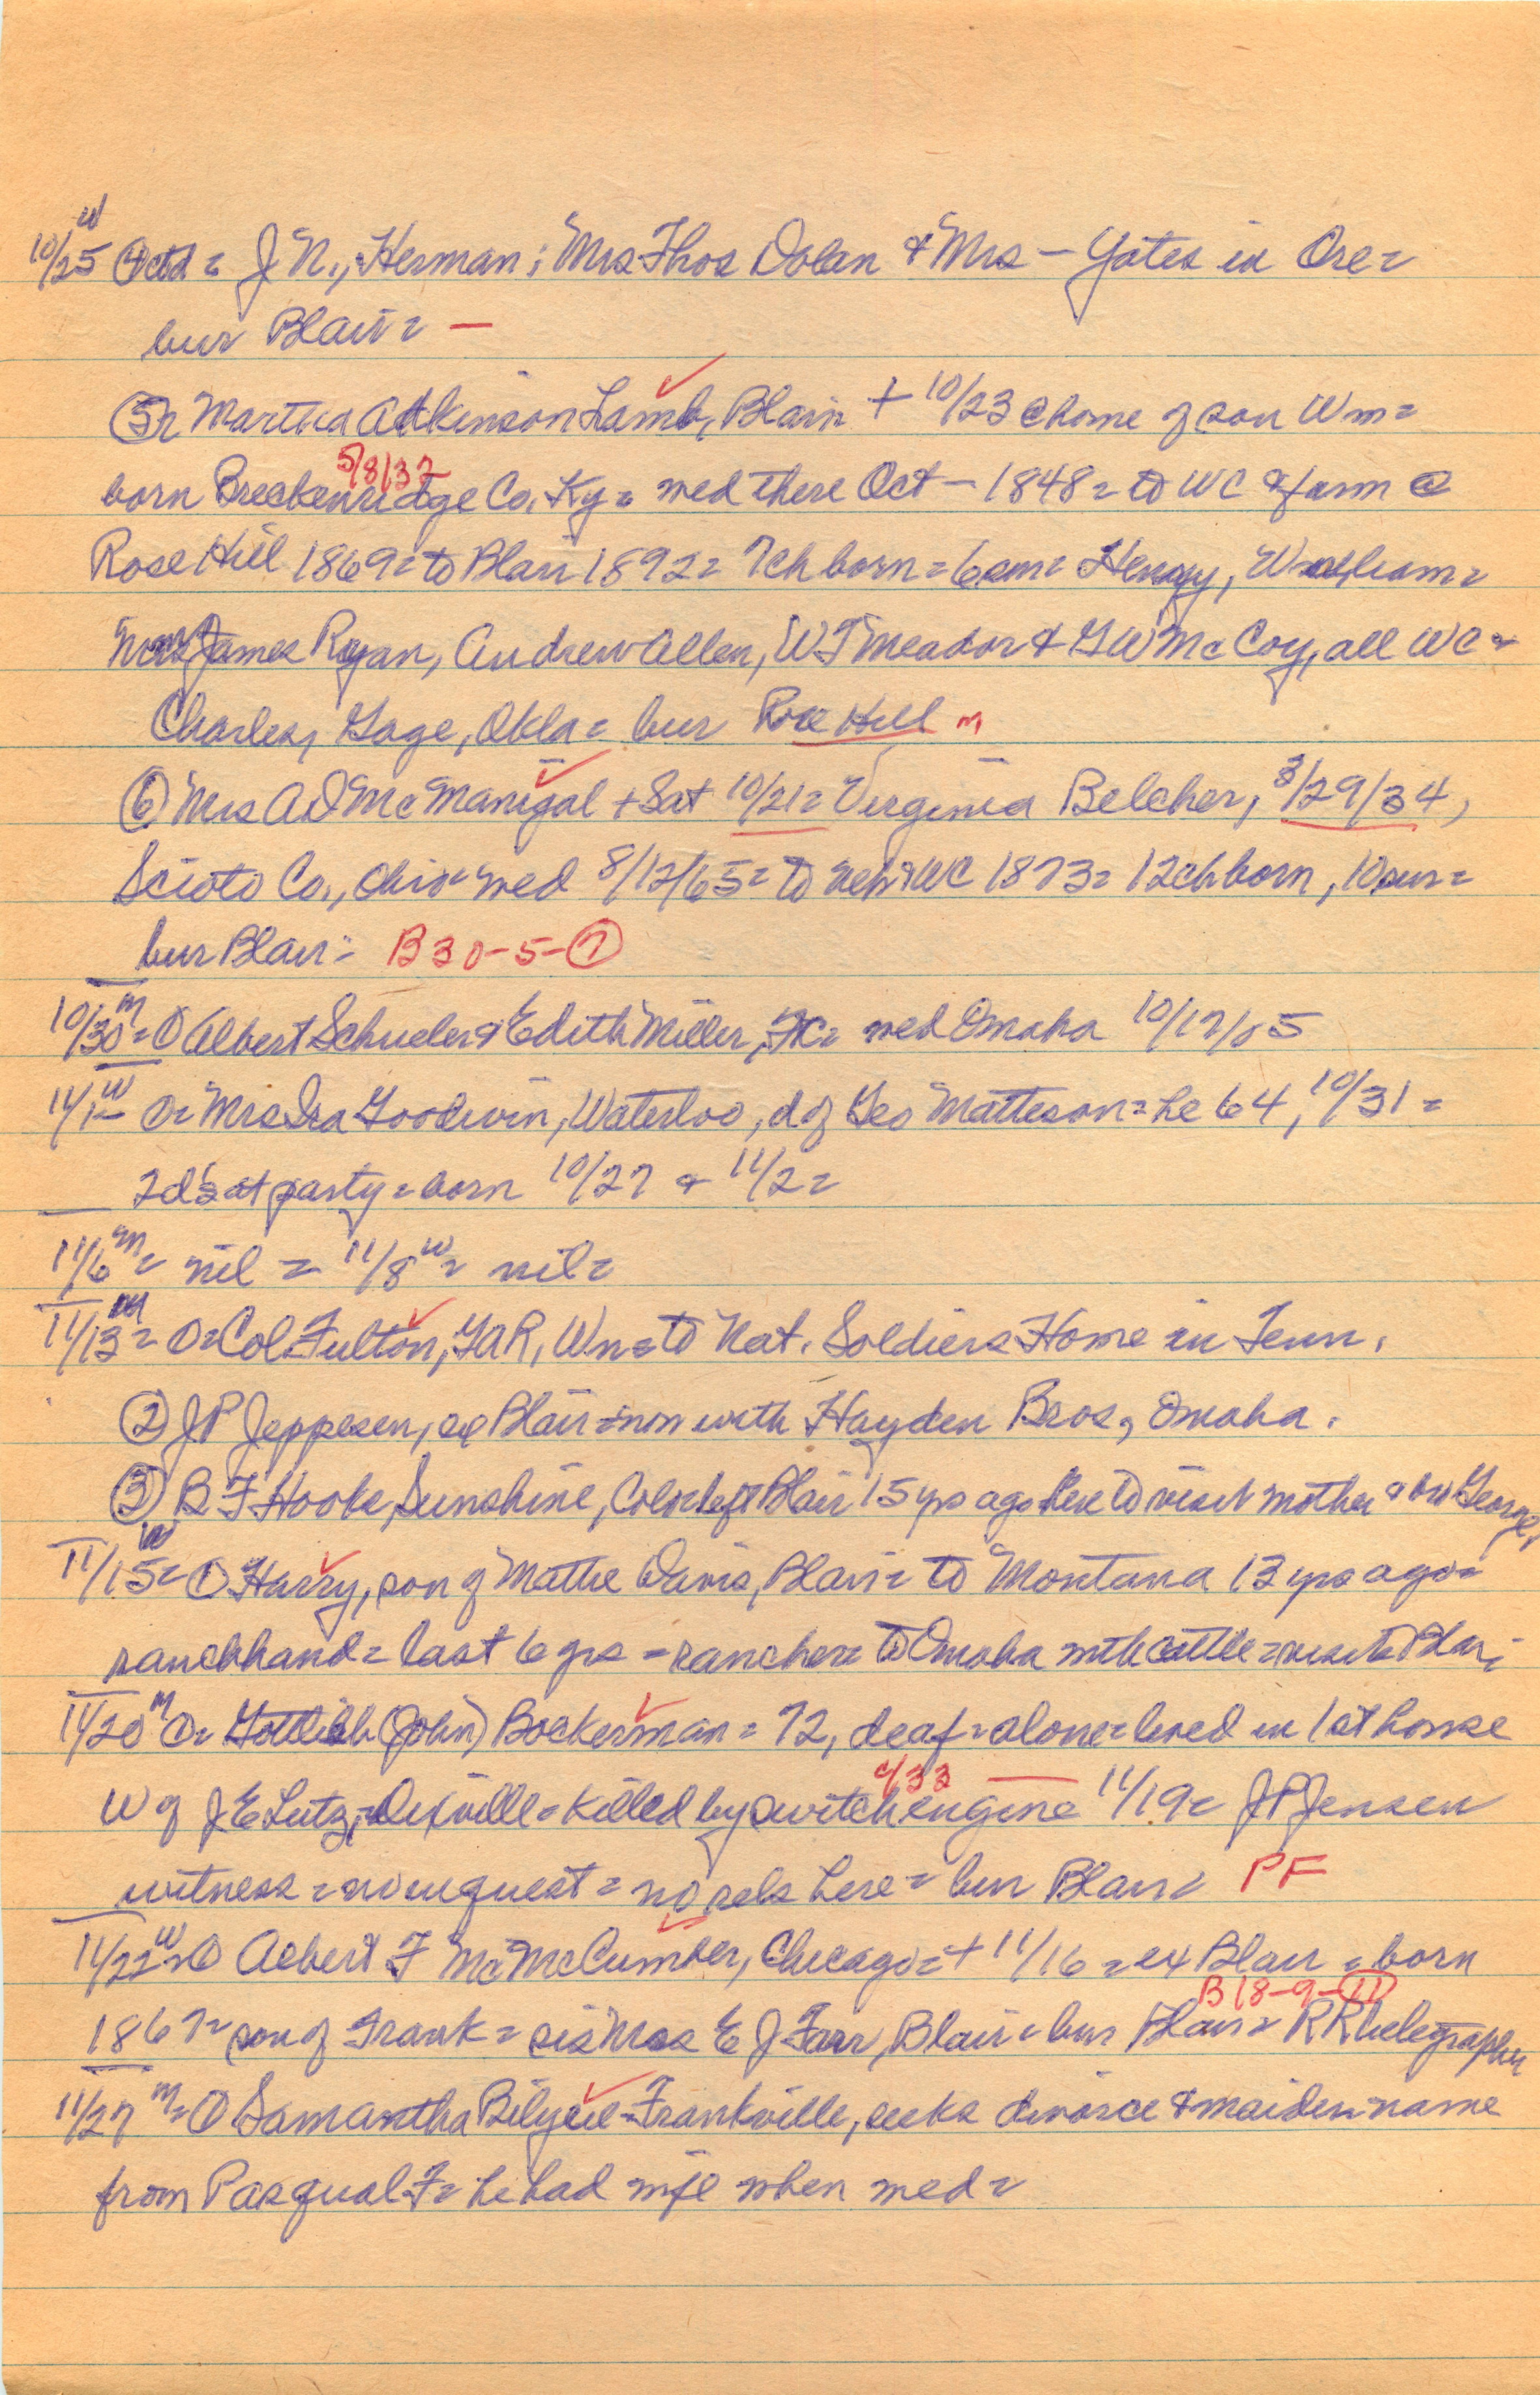 10/25 W ④ctd = J N., Herman; Mrs Thos Dolan & Mrs — Yates in Ore =
bur Blair = —
⑤= Martha Adkinson Lamb, Blair + 10/23 @ home of son Wm =
5/8/32
born Breckenridge Co, Ky = wed there Oct — 1848 = to WC & farm @
Rose Hill 1869 = to Blair 1892 = 7 ch born = 6 sur = Henry, William =
Mrs James Ryan, Andrew Allen, W T Meador & G W McCoy, all WC &
Charles, Gage, Okla = bur Rose Hill m
⑥ Mrs A D McManigal + Sat 10/21 = Virginia Belcher, 3/29/34,
Scioto Co., Ohio = wed 8/12/65 = to Neb & WC 1873 = 12 ch born, 10 sur =
bur Blair = B30-5-⑦
10/30 M = ① Albert Schueler & Edith Miller, = wed Omaha 10/17/05
11/1 W = ①= Mrs Ira Goodwin, Waterloo, d of Geo Matteson = he 64, 10/31 =
2 d's at party = born 10/27 & 11/2 =
11/6 M = nil = 11/8 W = nil =
11/13 M = ①= Col Fulton, GAR, Wn = to Nat. Soldiers Home in Tenn.
② J P Jeppesen, ex Blair = now with Hayden Bros, Omaha.
③ B F Hooke, Sunshine, Colo = left Blair 15 yrs ago = here to visit mother & bro George,
11/15 W = ① Harry, son of Mathe Davis, Blair = to Montana 13 yrs ago =
ranchhand = last 6 yrs = rancher = to Omaha with cattle = visited Blair =
11/20 M ①= Gottlieb (John) Bockerman = 72, deaf = alone = lived in 1st house
c/33 —
W of J E Lutz, Dexville = killed by switch engine 11/19 = J P Jensen
witness = no inquest = no rels here = bur Blair = PF
11/22 W = ① Albert F McMcCumber, Chicago = + 11/16 = ex Blair = born
B18-9-⑪
1867 = son of Frank = sis Mrs E J Farr, Blair = bur Blair = RR telegrapher
11/27 M = ① Samantha Bilyeil = Frankville, seeks divorce & maiden name
from Pasqual F = he had wife when wed =